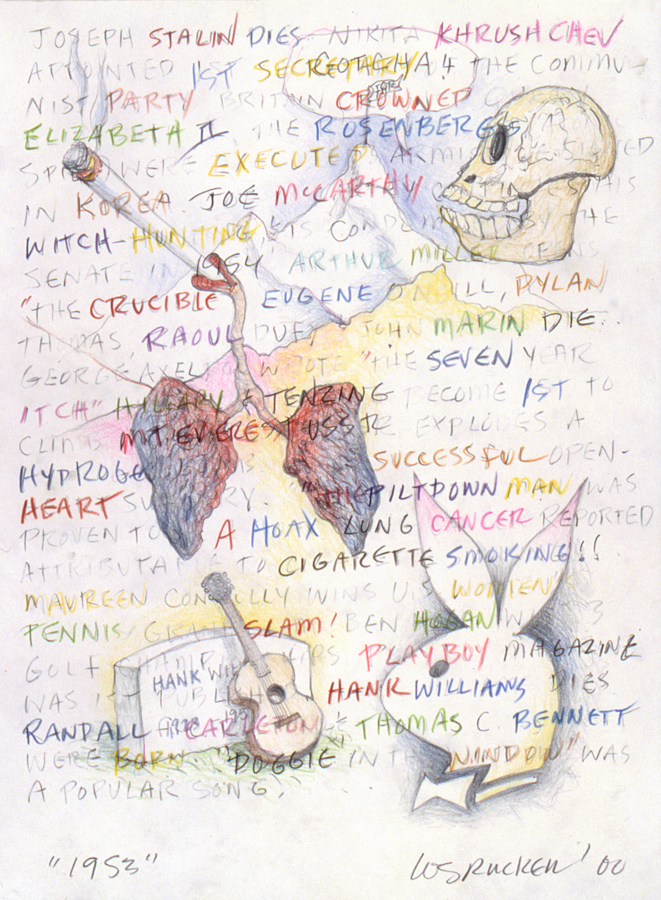 JOSEPH STALIN DIES. NIKITA KHRUSHCHEV
APPOINTED 1ST SECRETARY 4 THE COMMU-
NIST PARTY BRITAIN CROWNED
ELIZABETH II, THE ROSENBERGS,
SPIES WERE EXECUTED ARMISTICE SIGNED
IN KOREA. JOE McCARTHY CONTINUES HIS
WITCH-HUNTING, CONDEMNED BY THE
SENATE IN 1954 ARTHUR MILLER
"THE CRUCIBLE" EUGENE O'NEILL, DYLAN
THOMAS, RAOUL DUFY, JOHN MARIN DIE.
GEORGE AXELROD WROTE "THE SEVEN YEAR
ITCH" HILLARY & TENZING BECOME 1ST TO
CLIMB MT. EVEREST USSR EXPLODES A
HYDROGEN SUCCESSFUL OPEN-
HEART SURGERY. "THE PILTDOWN MAN" WAS
PROVEN TO A HOAX LUNG CANCER REPORTED
ATTRIBUTABLE TO CIGARETTE SMOKING!!
MAUREEN CONNOLLY WINS U.S. WOMEN'S
TENNIS GRAND SLAM! BEN HOGAN WINS 3
GOLF CHAMPIONSHIPS PLAYBOY MAGAZINE
WAS 1ST PUBLISHED HANK WILLIAMS DIES
RANDALL CARLETON & THOMAS C. BENNETT
WERE BORN. "DOGGIE IN THE WINDOW" WAS
A POPULAR SONG.
GOTCHA!
HANK WILL
"1953"
WS RUCKER '00